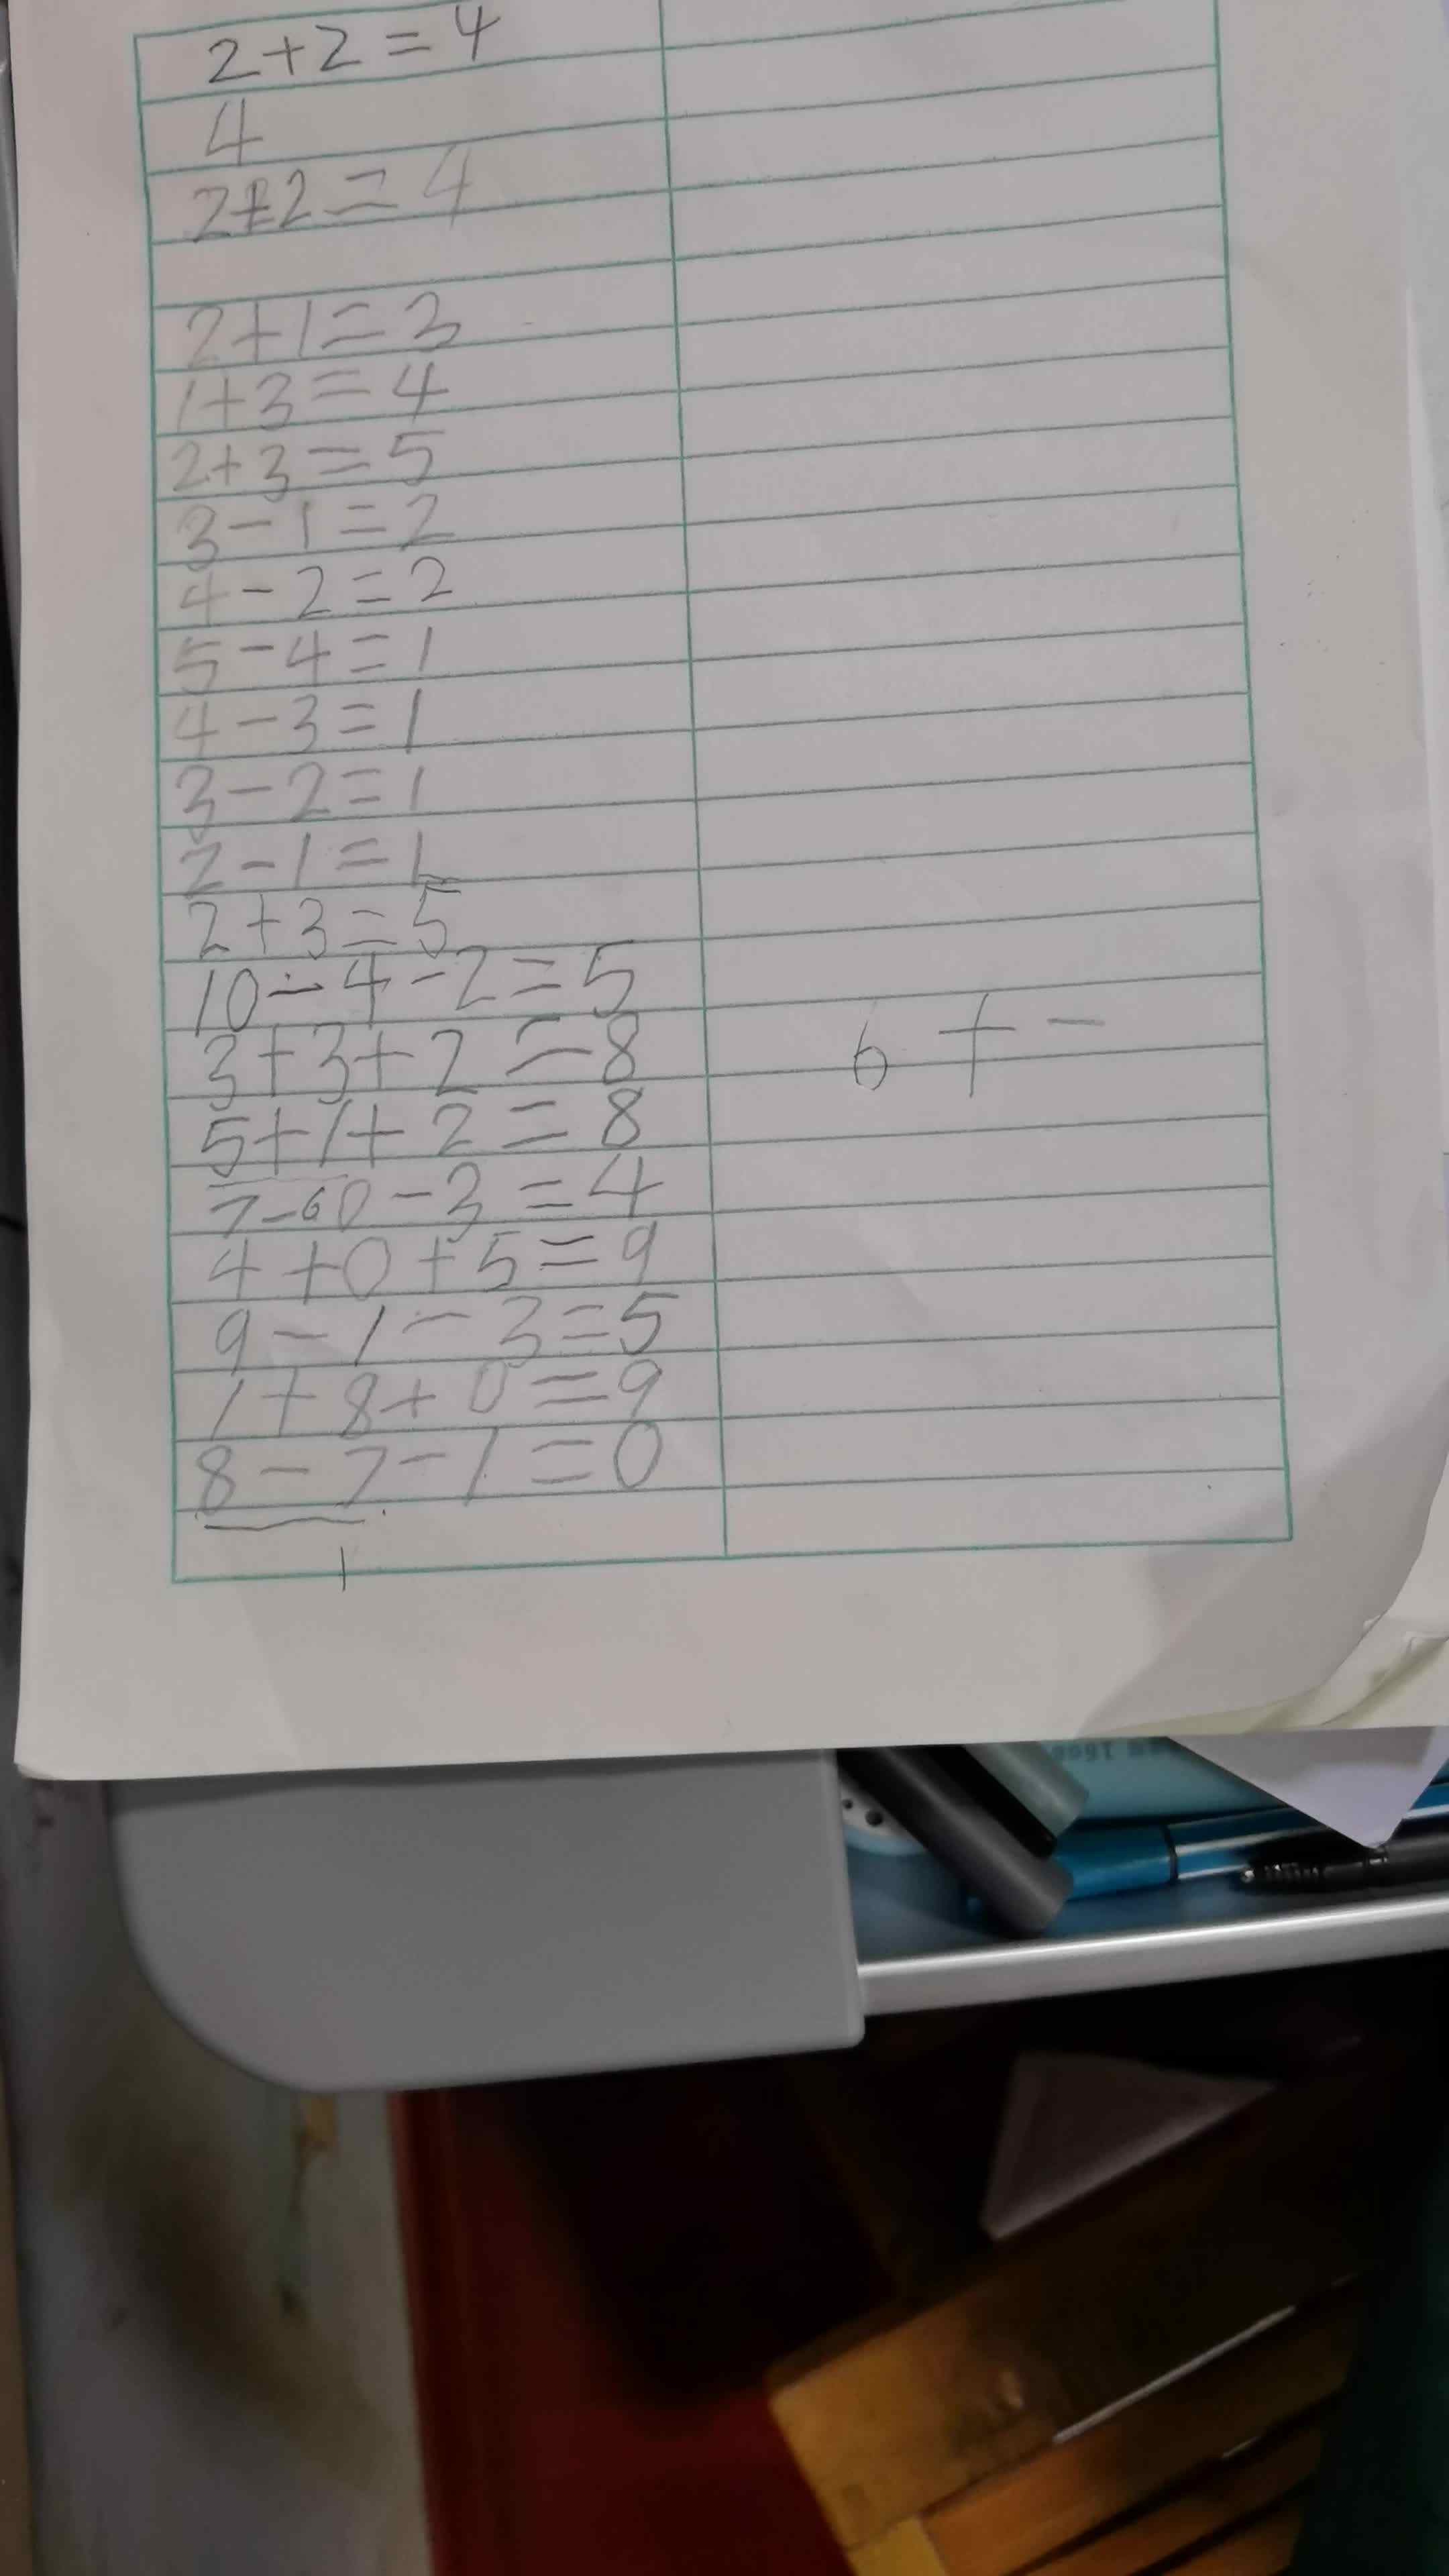 2+2=4
4
2+2=4
2+1=3
1+3=4
2+3=5
3-1=2
4-2=2
5-4=1
4-3=1
3-2=1
2-1=1
2+3=5
10-4-2=5
3+3+2=8
6+-
5+1+2=8
7-0-3=4
4+0+5=9
9-1-3=5
1+8+0=9
8-7-1=0
1